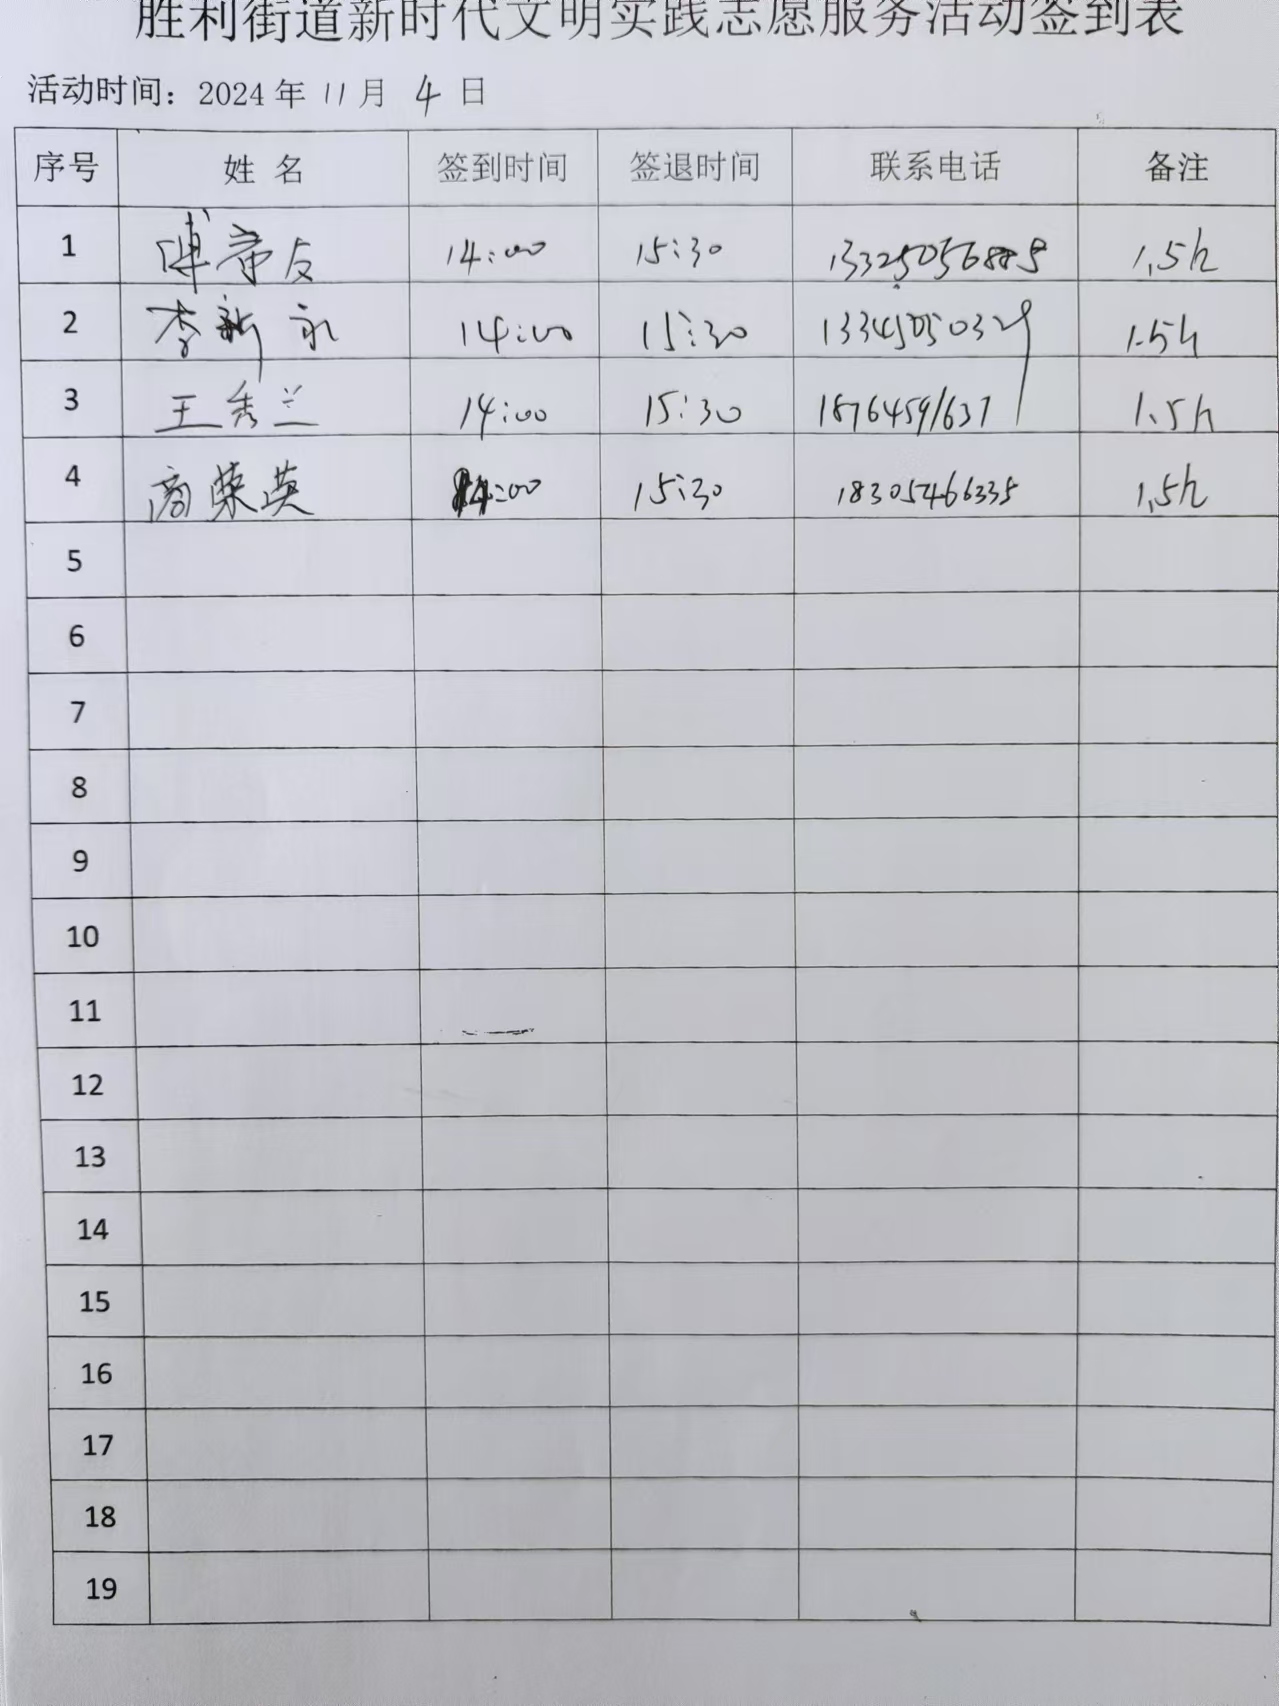 胜利街道新时代文明实践志愿服务活动签到表
活动时间：2024年 11月 4 日
序号 姓名 签到时间 签退时间 联系电话 备注
1 14:00 15:30 1.5h
2 李新永 14:00 15:30 1.5h
3 王秀兰 14:00 15:30 18764591637 1.5h
4 商荣英 14:00 15:30 18305466335 1.5h
5
6
7
8
9
10
11
12
13
14
15
16
17
18
19